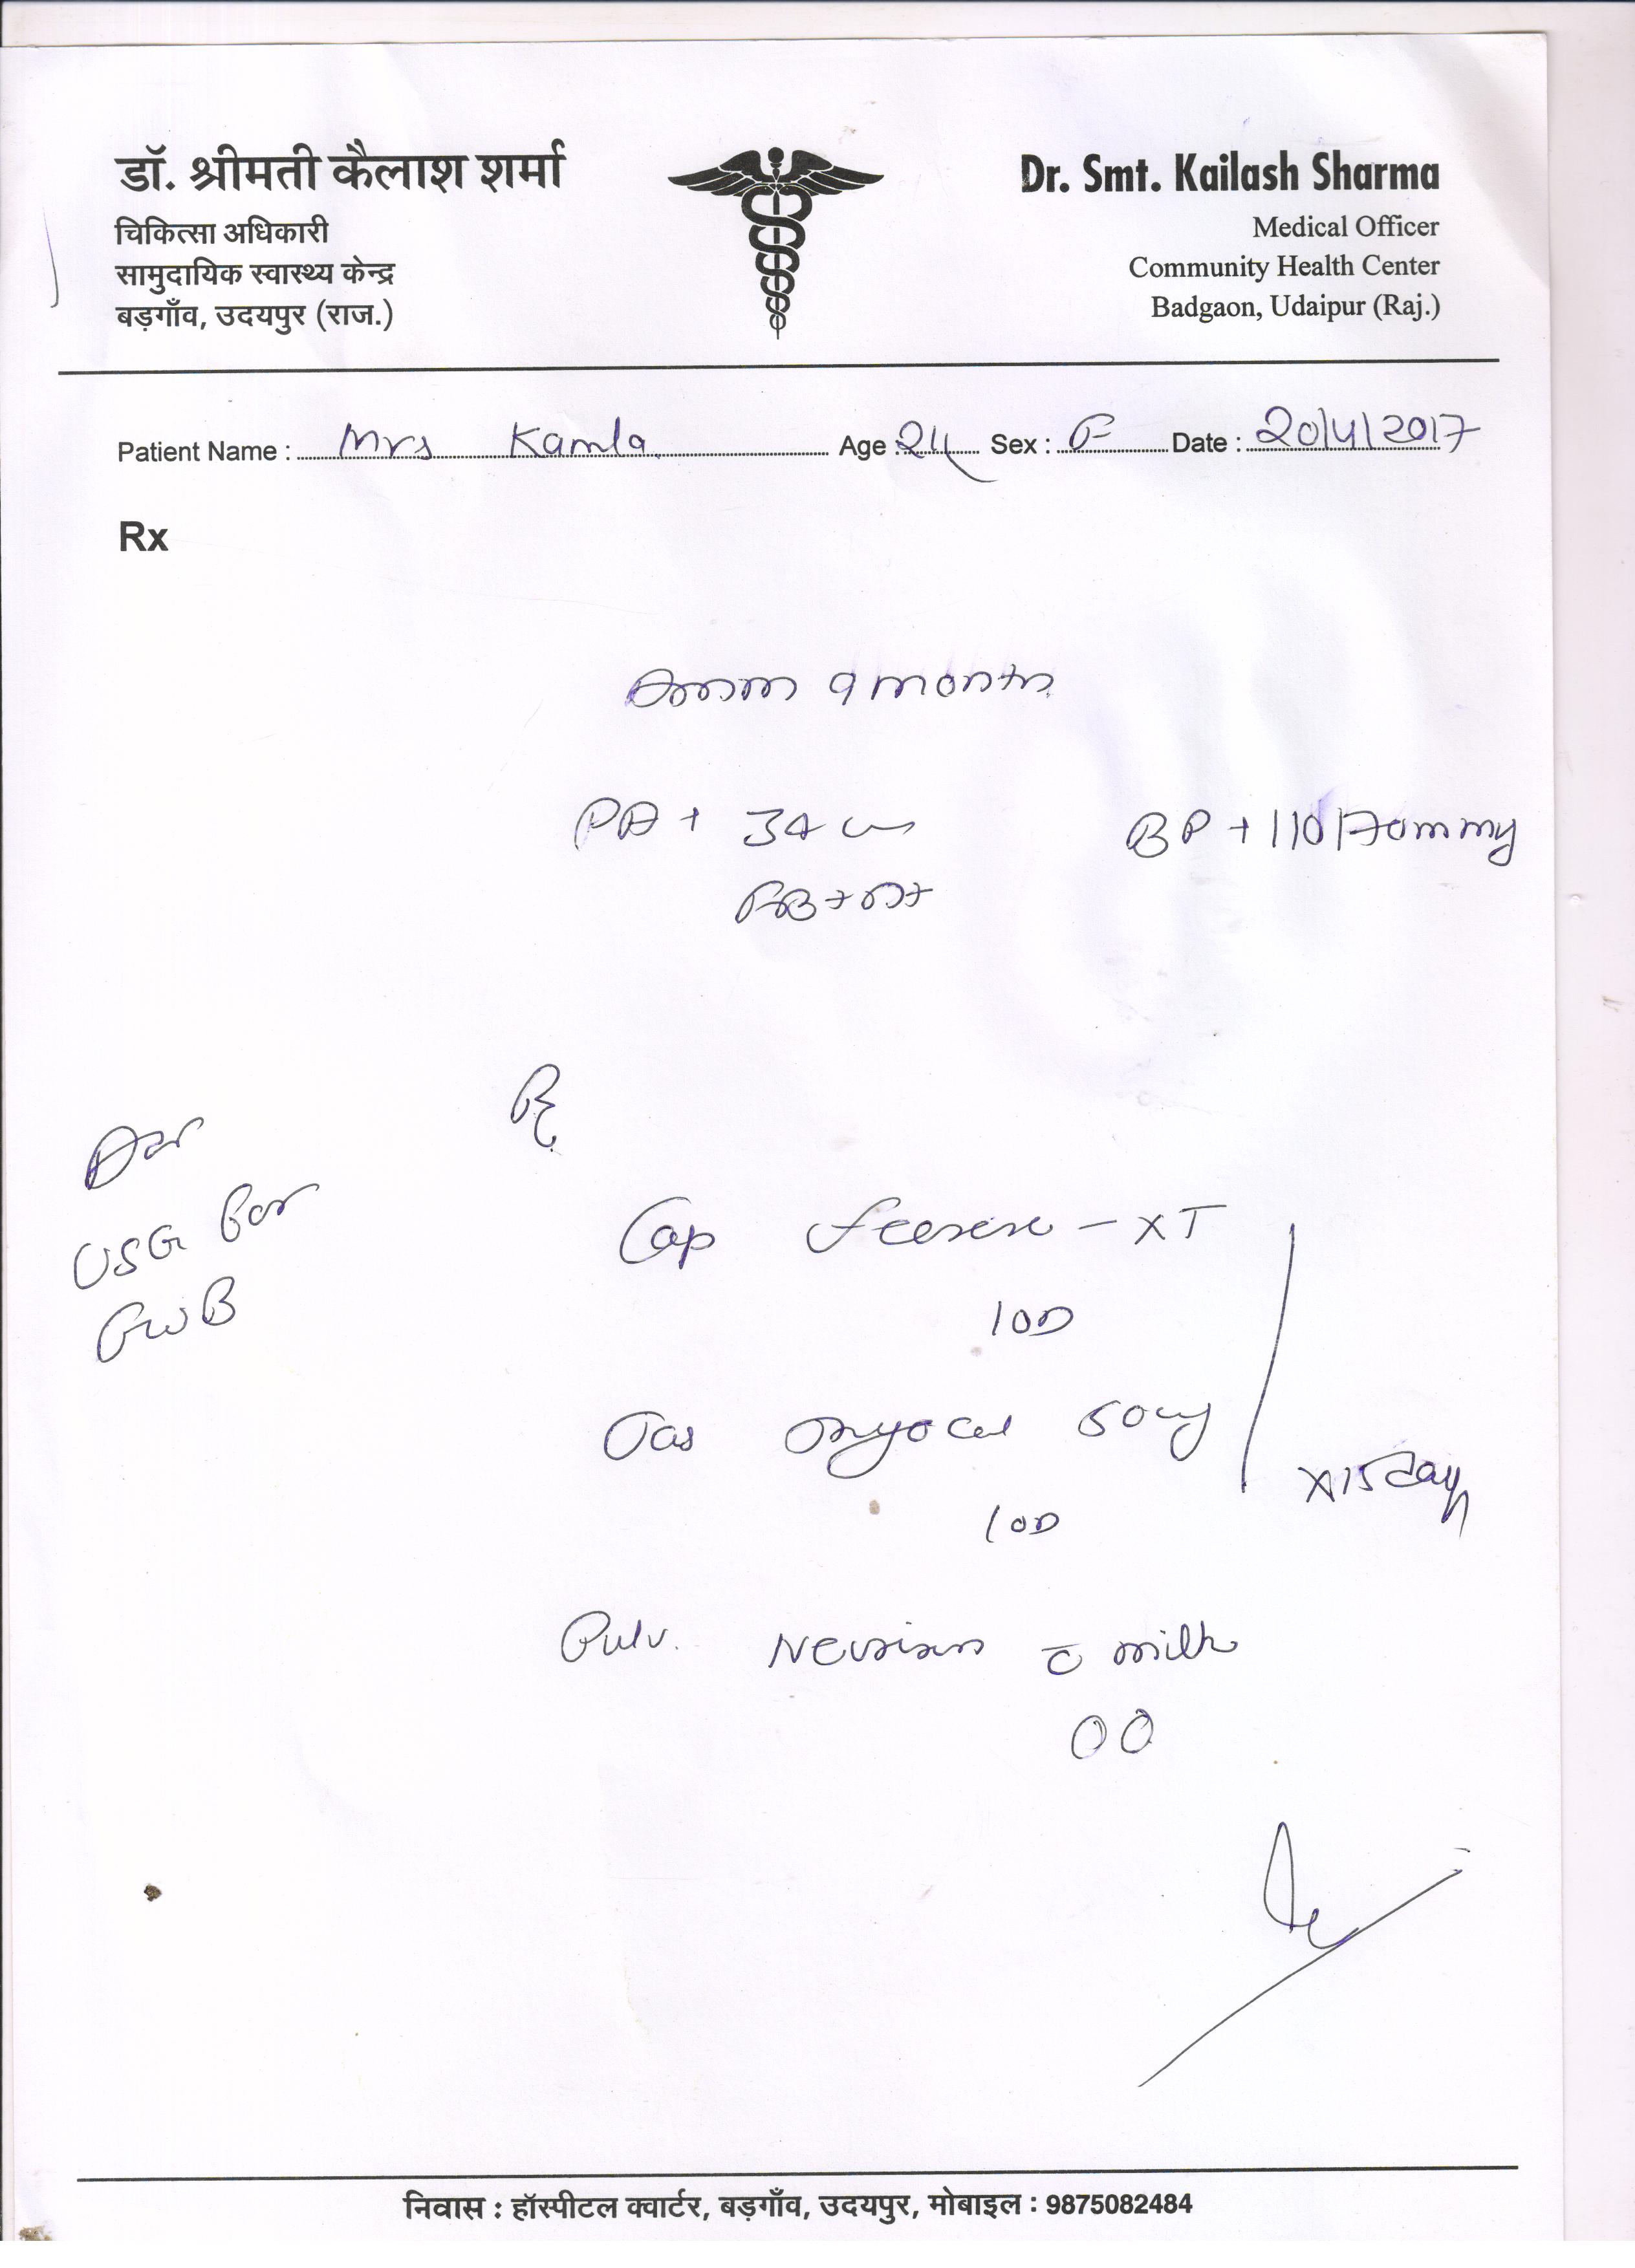 डॉ. श्रीमती कैलाश शर्मा
चिकित्सा अधिकारी
सामुदायिक स्वास्थ्य केन्द्र
बड़गाँव, उदयपुर (राज.)
Dr. Smt. Kailash Sharma
Medical Officer
Community Health Center
Badgaon, Udaipur (Raj.)
Patient Name : Mrs Kamla Age : 24 Sex : F Date : 20/4/2017
Rx
9 month
PA + 34 BP + 110/70mmHg
Adv
USG for
FWB
Cap - XT
1 OD
50mg
1 OD
x 15 days
Pulv. c̄ milk
निवास : हॉस्पीटल क्वार्टर, बड़गाँव, उदयपुर, मोबाइल : 9875082484